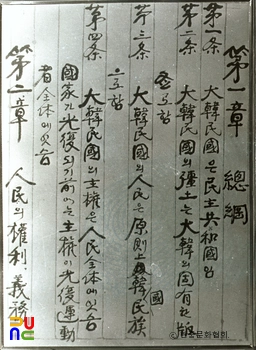 第一章 總綱
第一条 大韓民國은民主共和國임
第二条 大韓民國의疆土는大韓의固有한版
도로함
第三条 大韓民國의人民은原則上韓國民族
으로함
第四条 大韓民國의主權은人民全体에잇슴
國家가光復되기前에는主權이光復運動
者全体에잇슴
第二章 人民의權利、義務